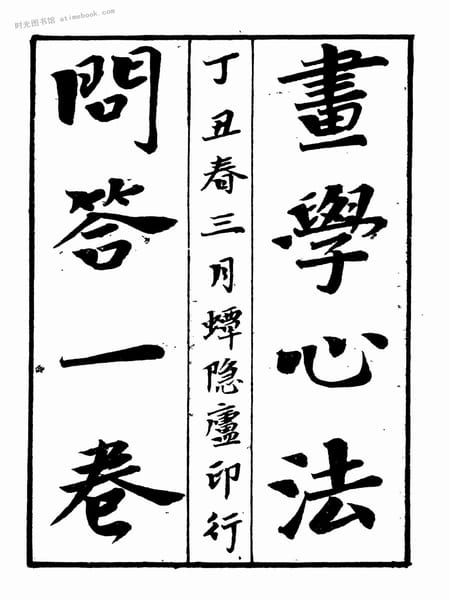 畫學心法
丁丑春三月蟫隐廬印行
問答一卷
时光图书馆 atimebook.com